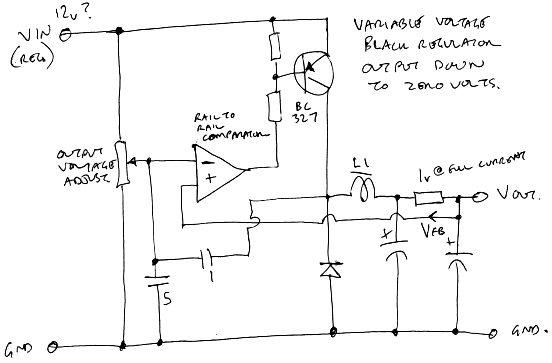 12v?
VIN
(REG)
VARIABLE VOLTAGE
BLACK REGULATOR
OUTPUT DOWN
TO ZERO VOLTS.
RAIL TO
RAIL
COMPARATOR
BC
327
OUTPUT
VOLTAGE
ADJUST
-
+
L1
1v @ FULL CURRENT
VOUT.
VFB
+
+
1
5
GND
GND.